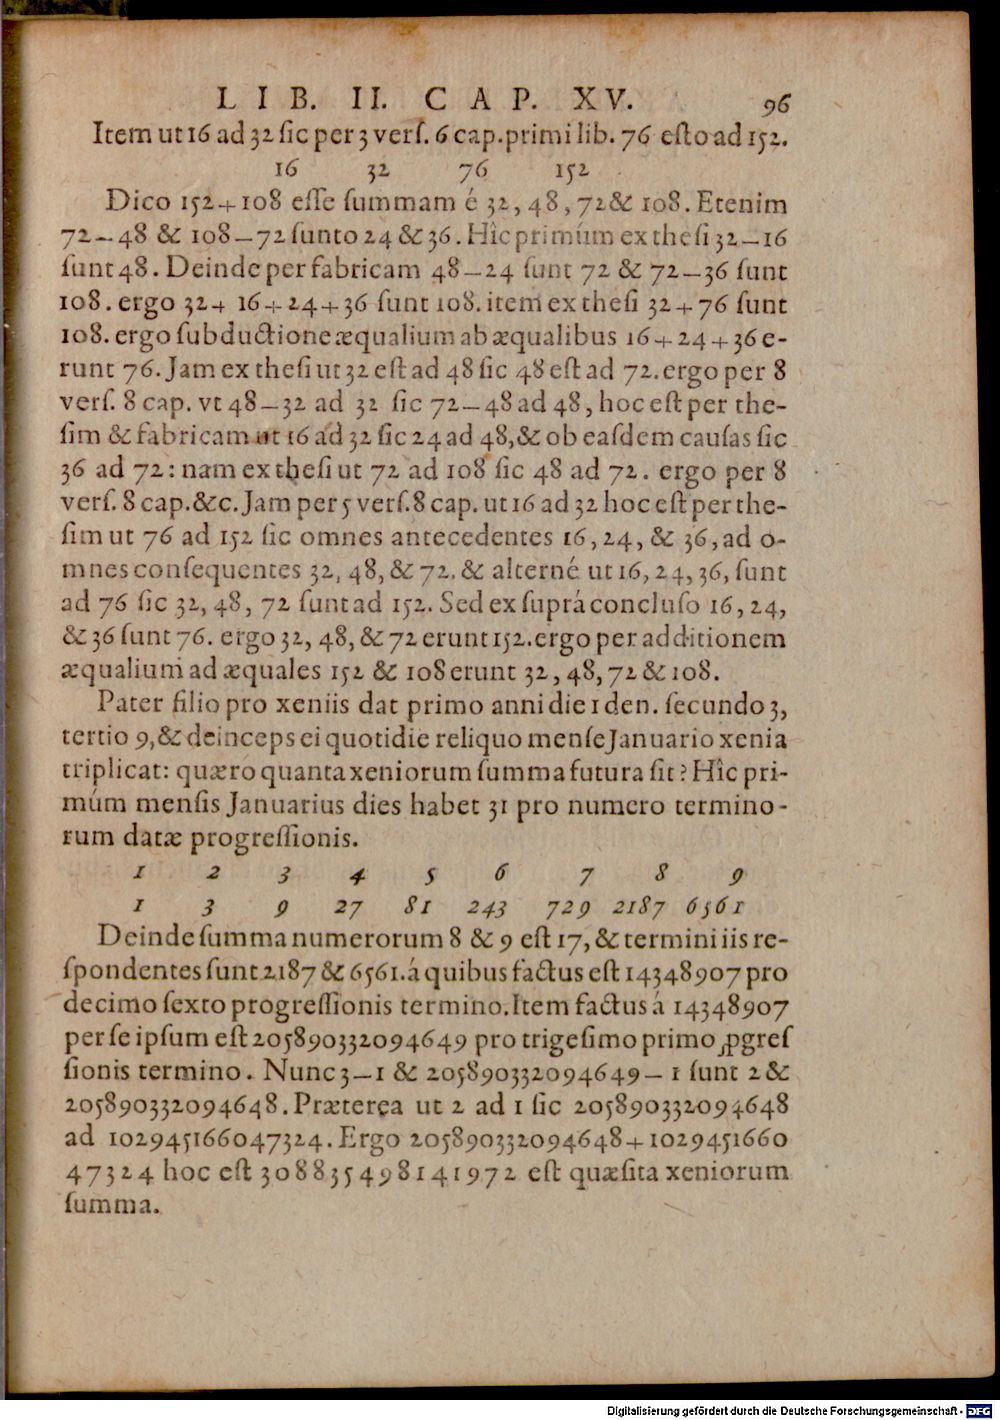 LIB. II. CAP. XV. 96
Item ut 16 ad 32 ſic per 3 verſ. 6 cap. primi lib. 76 eſto ad 152.
16 32 76 152
Dico 152+108 eſſe ſummam é 32, 48, 72 & 108. Etenim
72—48 & 108—72 ſunto 24 & 36. Hîc primúm ex theſi 32—16
ſunt 48. Deinde per fabricam 48—24 ſunt 72 & 72—36 ſunt
108. ergo 32+ 16+24+36 ſunt 108. item ex theſi 32+76 ſunt
108. ergo ſubductione æqualium ab æqualibus 16+24+36 e-
runt 76. Jam ex theſi ut 32 eſt ad 48 ſic 48 eſt ad 72. ergo per 8
verſ. 8 cap. vt 48—32 ad 32 ſic 72—48 ad 48, hoc eſt per the-
ſim & fabricam ut 16 ad 32 ſic 24 ad 48, & ob eaſdem cauſas ſic
36 ad 72: nam ex theſi ut 72 ad 108 ſic 48 ad 72. ergo per 8
verſ. 8 cap. &c. Jam per 5 verſ. 8 cap. ut 16 ad 32 hoc eſt per the-
ſim ut 76 ad 152 ſic omnes antecedentes 16, 24, & 36, ad o-
mnes conſequentes 32, 48, & 72. & alterné ut 16, 24, 36, ſunt
ad 76 ſic 32, 48, 72 ſunt ad 152. Sed ex ſuprá concluſo 16, 24,
& 36 ſunt 76. ergo 32, 48, & 72 erunt 152. ergo per additionem
æqualium ad æquales 152 & 108 erunt 32, 48, 72 & 108.
Pater filio pro xeniis dat primo anni die 1 den. ſecundo 3,
tertio 9, & deinceps ei quotidie reliquo menſe Januario xenia
triplicat: quæro quanta xeniorum ſumma futura ſit? Hîc pri-
múm menſis Januarius dies habet 31 pro numero termino-
rum datæ progreſſionis.
1 2 3 4 5 6 7 8 9
1 3 9 27 81 243 729 2187 6561
Deinde ſumma numerorum 8 & 9 eſt 17, & termini iis re-
ſpondentes ſunt 2187 & 6561. á quibus factus eſt 14348907 pro
decimo ſexto progreſſionis termino. Item factus á 14348907
per ſe ipſum eſt 205890332094649 pro trigeſimo primo ꝓgreſ
ſionis termino. Nunc 3—1 & 205890332094649—1 ſunt 2 &
205890332094648. Præterea ut 2 ad 1 ſic 205890332094648
ad 102945166047324. Ergo 205890332094648+1029451660
47324 hoc eſt 308835498141972 eſt quæſita xeniorum
ſumma.
Digitalisierung gefördert durch die Deutsche Forschungsgemeinschaft - DFG